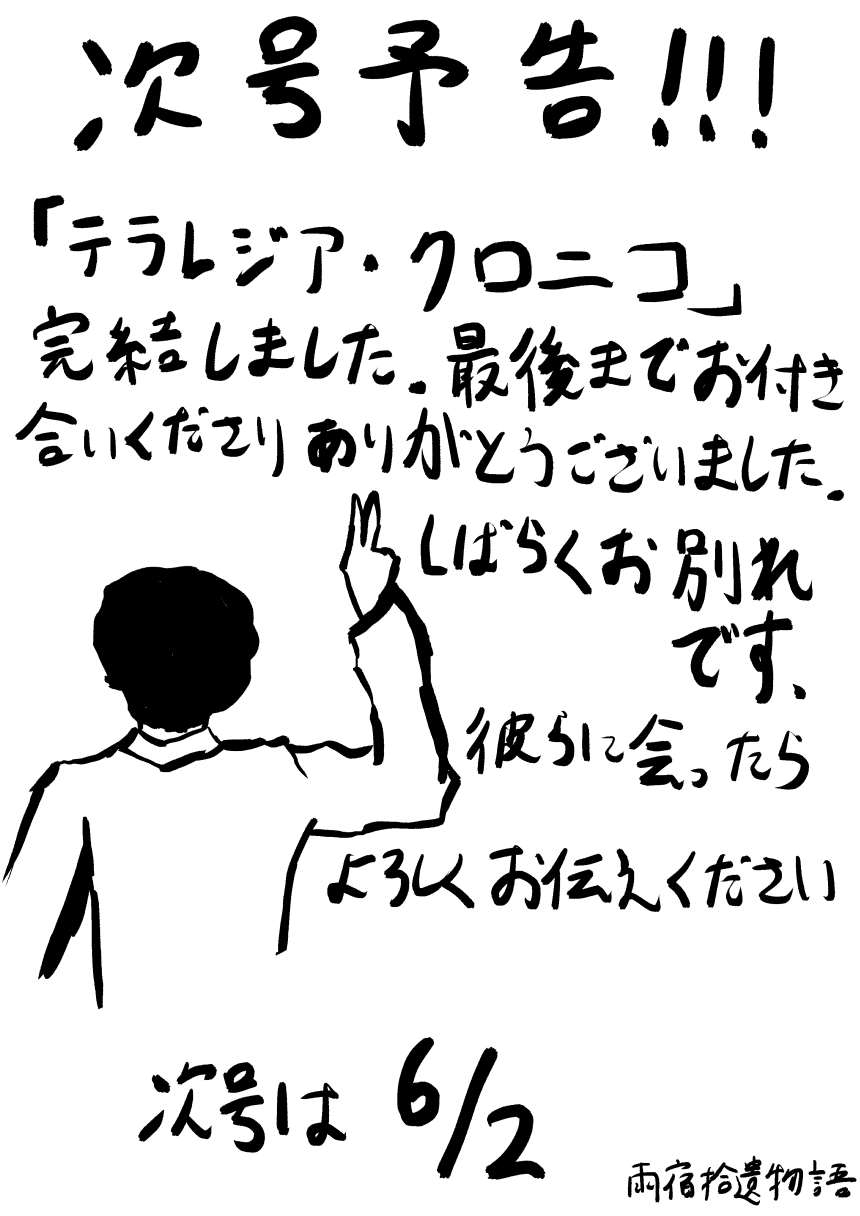 次号予告!!!
「テラレジア・クロニコ」
完結しました。最後までお付き
合いくださりありがとうございました。
しばらくお別れ
です、
彼らに会ったら
よろしくお伝えください
次号は 6/2
雨宿拾遺物語